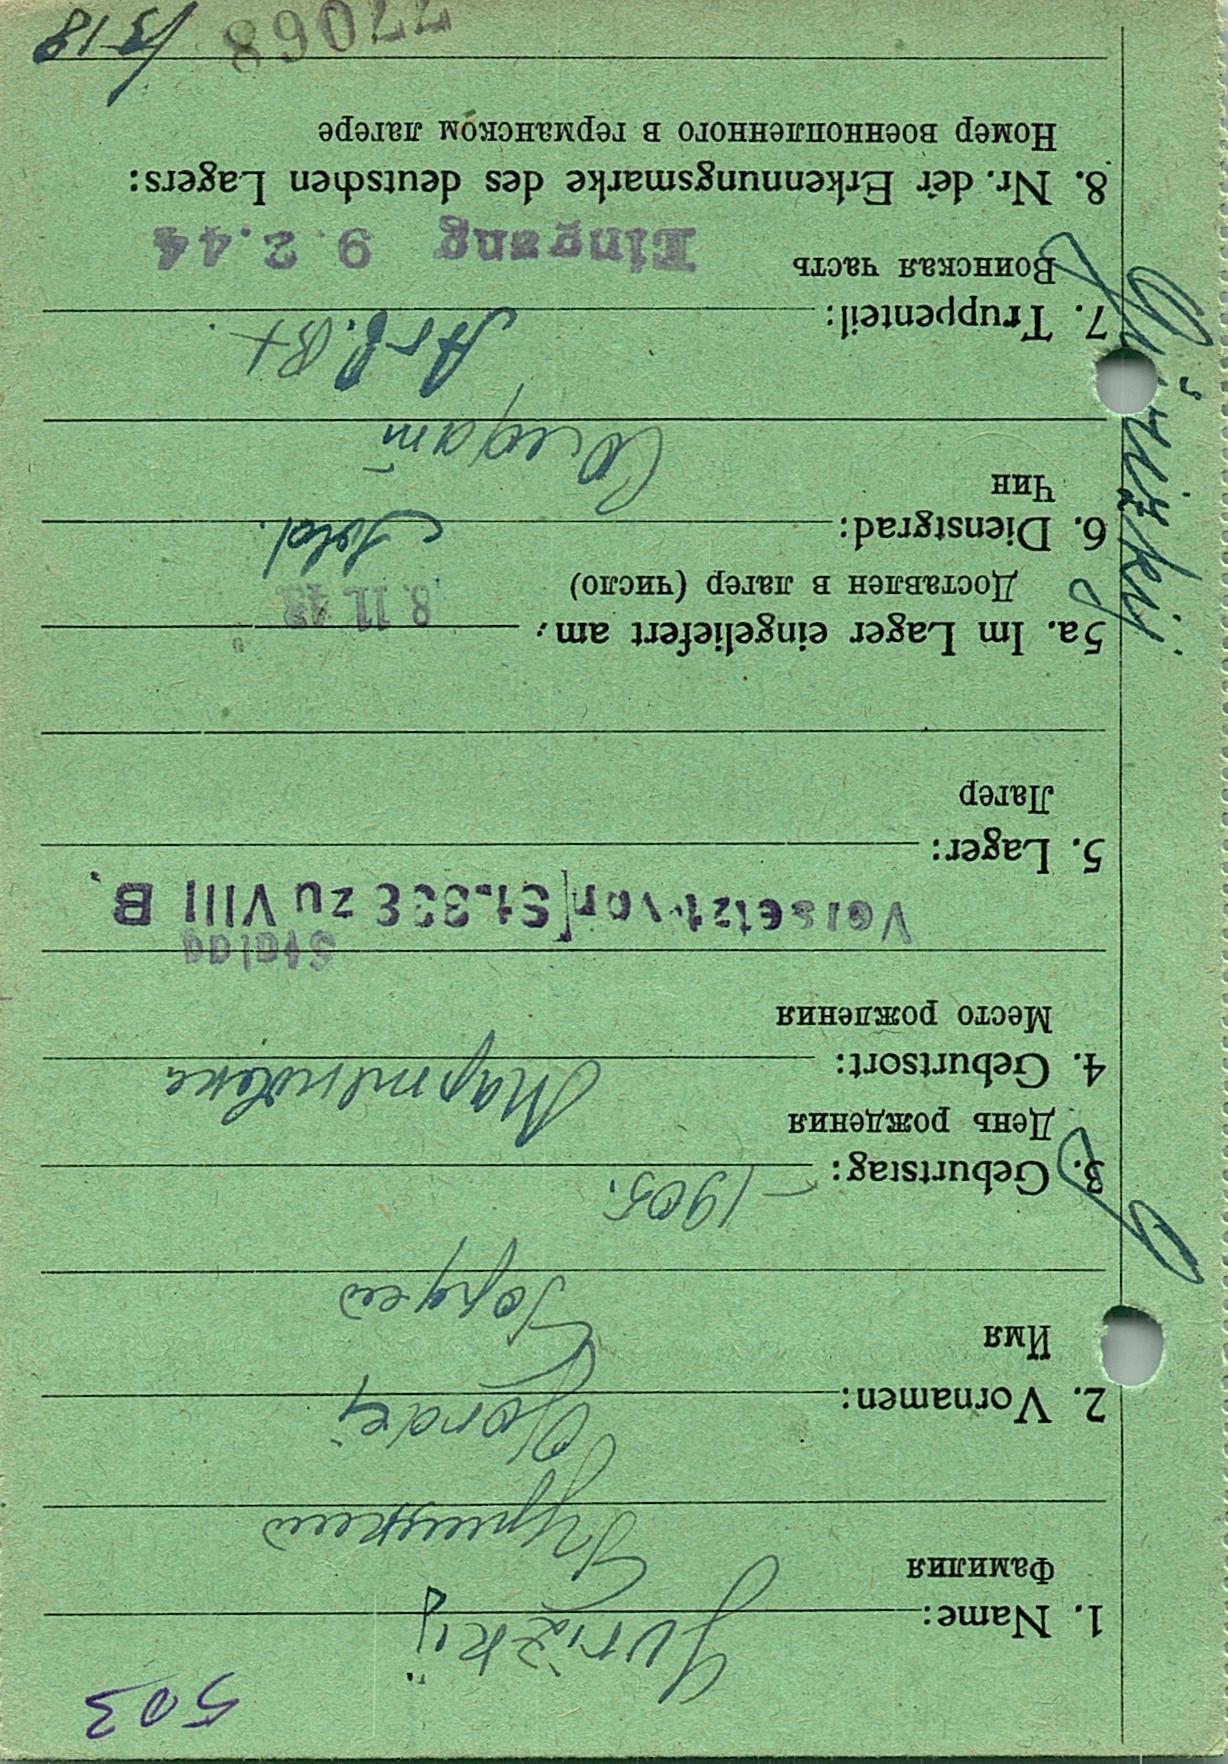 503
Gurizkij
1. Name:
Фамилия
Гурицкий
Gordej
2. Vornamen:
Имя
Гордей
- 1905.
3. Geburtstag:
День рождения
4. Geburtsort:
Место рождения
Stalag
Versetzt von St. 338 zu VIII B.
5. Lager:
Лагерь
5a. Im Lager eingeliefert am:
8. 11. 43
Доставлен в лагерь (число)
Sold.
6. Dienstgrad:
Чин
Солдат
Arb. Bt.
7. Truppenteil:
Воинская часть
Eingang 9. 2. 44
8. Nr. der Erkennungsmarke des deutschen Lagers:
Номер военнопленного в германском лагере
77068
G
Gurizkij